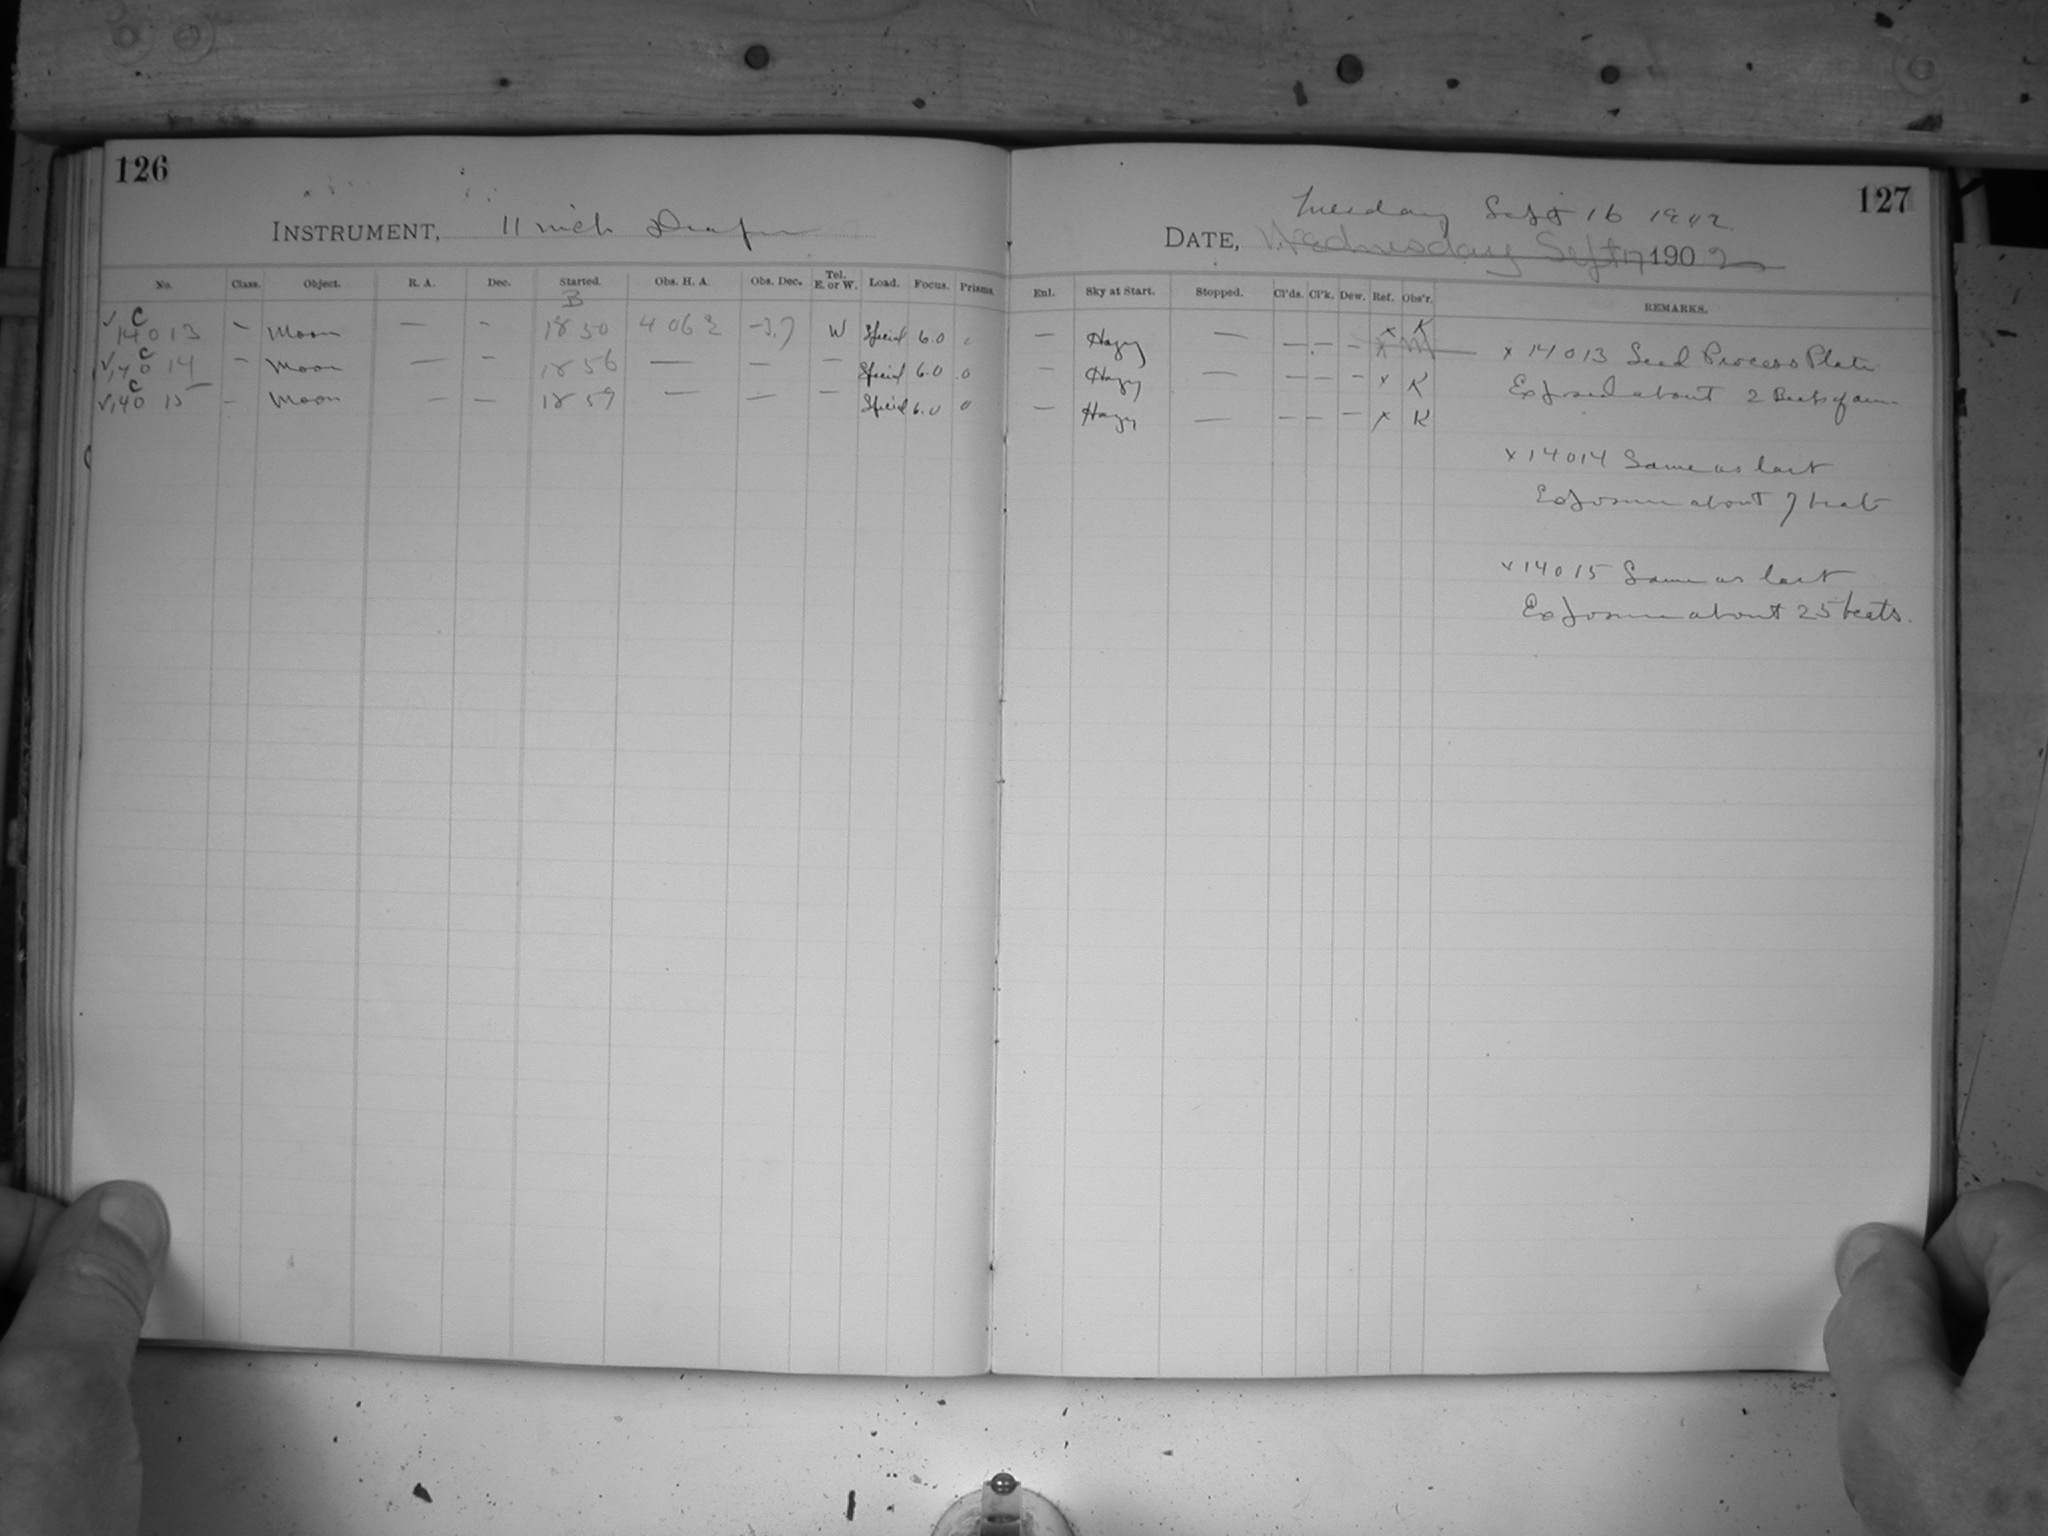 126
INSTRUMENT, 11 inch Draper
No. Class. Object. R. A. Dec. Started. Obs. H. A. Obs. Dec. Tel. E. or W. Load. Focus. Prisms.
B
√ C 14013 – Moon — – 18 50 4 06 2 W Special 6.0
√ C 14014 – Moon — – 18 56 — — — Special 6.0 0
√ C 14015 – Moon — — 18 59 — — — Special 6.0 0
127
Tuesday Sept 16 1902
DATE, Wednesday Sept 17 1902
Enl. Sky at Start. Stopped. Cl'ds. Cl'k. Dew. Ref. Obs'r. REMARKS.
— Hazy — — — — x K
— Hazy — — — — x K
— Hazy — — — — x K
x 14013 Seed Process Plate
Exposed about 2 Beats of
x 14014 Same as last
Exposure about 7 beats
x 14015 Same as last
Exposure about 25 beats.